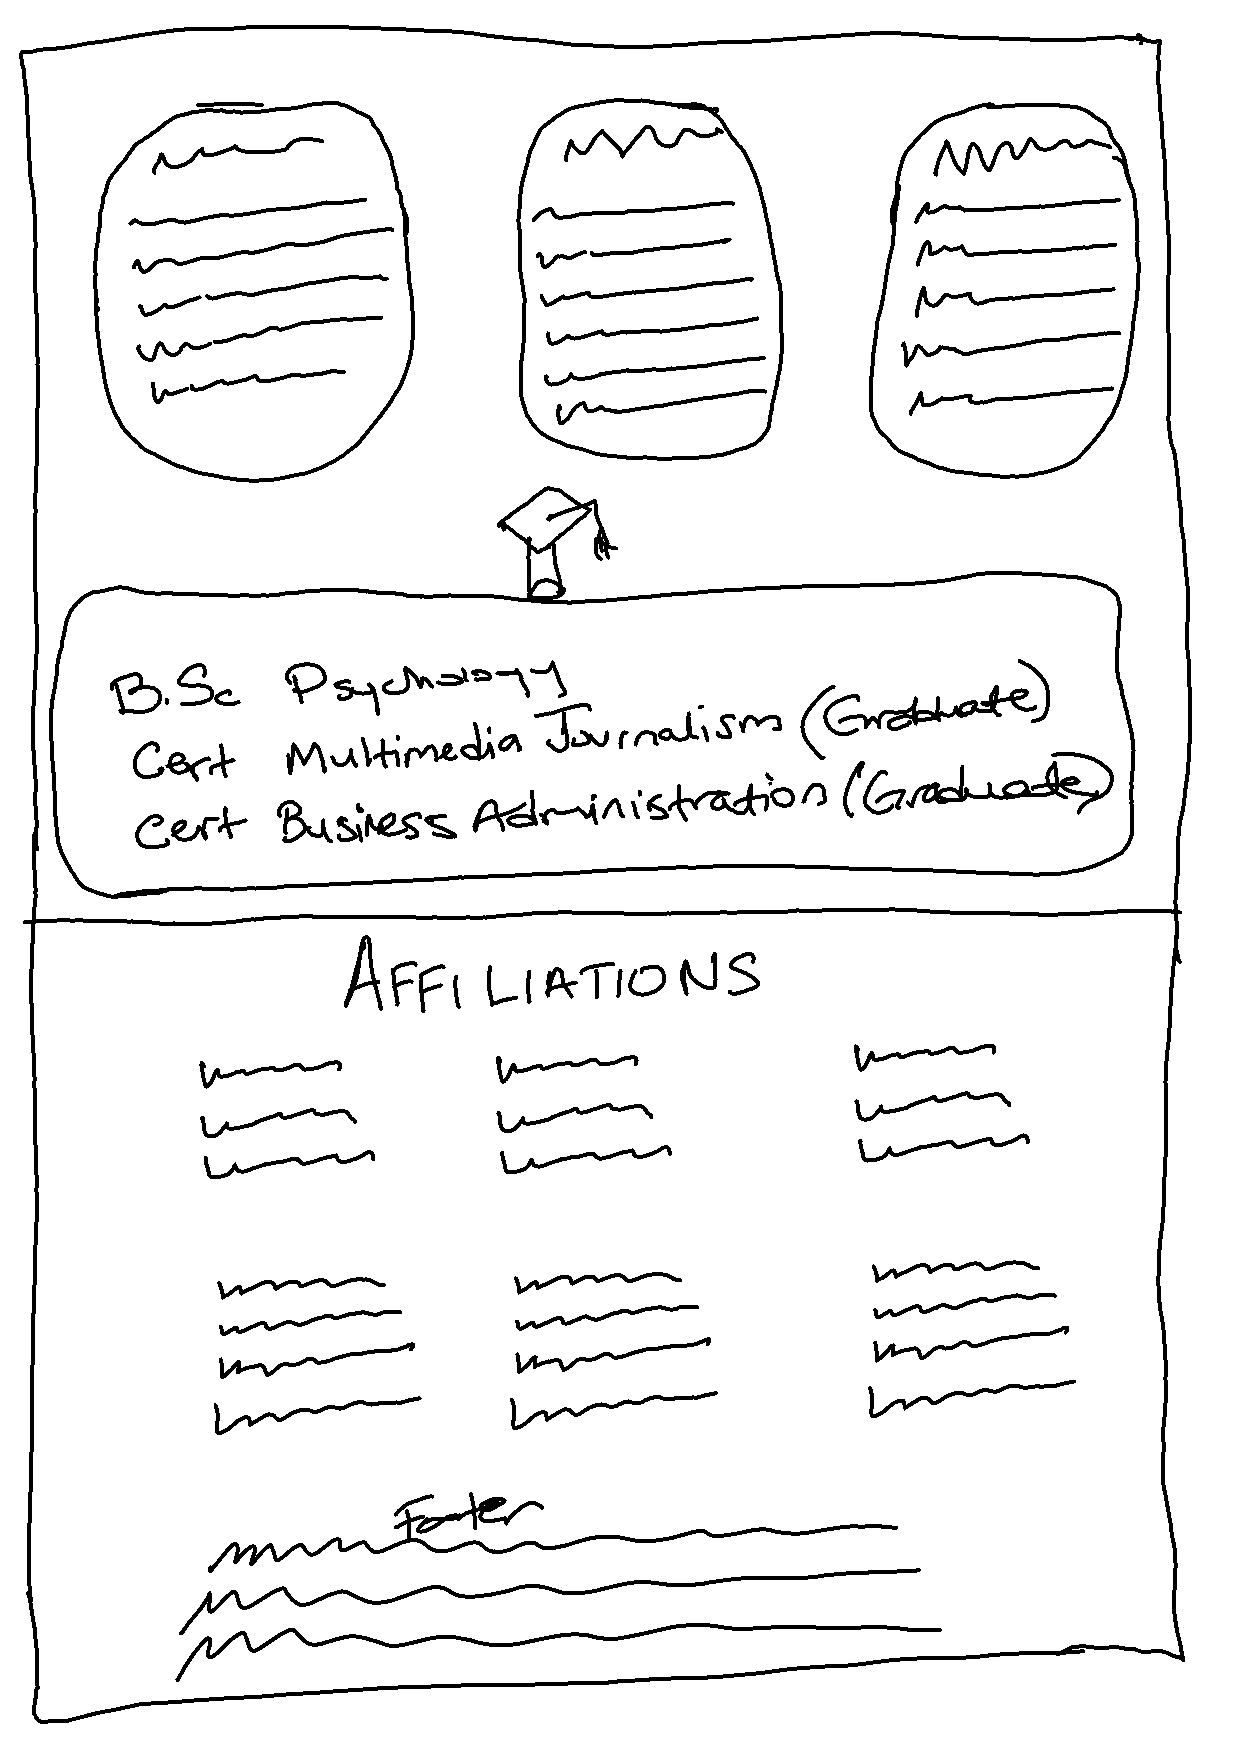 B.Sc Psychology
Cert Multimedia Journalism (Graduate)
Cert Business Administration (Graduate)
AFFILIATIONS
Footer